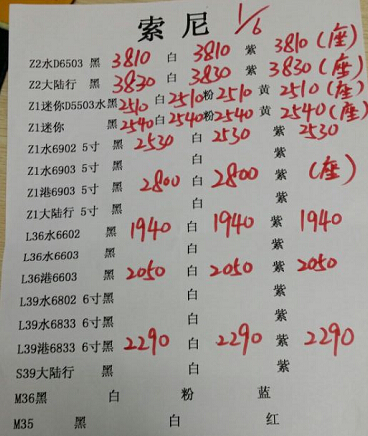 索尼 1/6
Z2水D6503 黑 3810 白 3810 紫 3810(座)
Z2大陆行 黑 3830 白 3830 紫 3830(座)
Z1迷你D5503水黑 2510 白 2510 粉 2510 黄 2510(座)
Z1迷你 黑 2540 白 2540 粉 2540 黄 2540(座)
Z1水6902 5寸 黑 2530 白 2530 紫 2530
Z1水6903 5寸 黑 白 紫
Z1港6903 5寸 黑 2800 白 2800 紫 (座)
Z1大陆行 5寸 黑 白 紫
L36水6602 黑 1940 白 1940 紫 1940
L36水6603 黑 白 紫
L36港6603 黑 2050 白 2050 紫 2050
L39水6802 6寸黑 白 紫
L39水6833 6寸黑 白 紫
L39港6833 6寸黑 2290 白 2290 紫 2290
S39大陆行 黑 白 紫
M36黑 白 粉 蓝
M35 黑 白 红